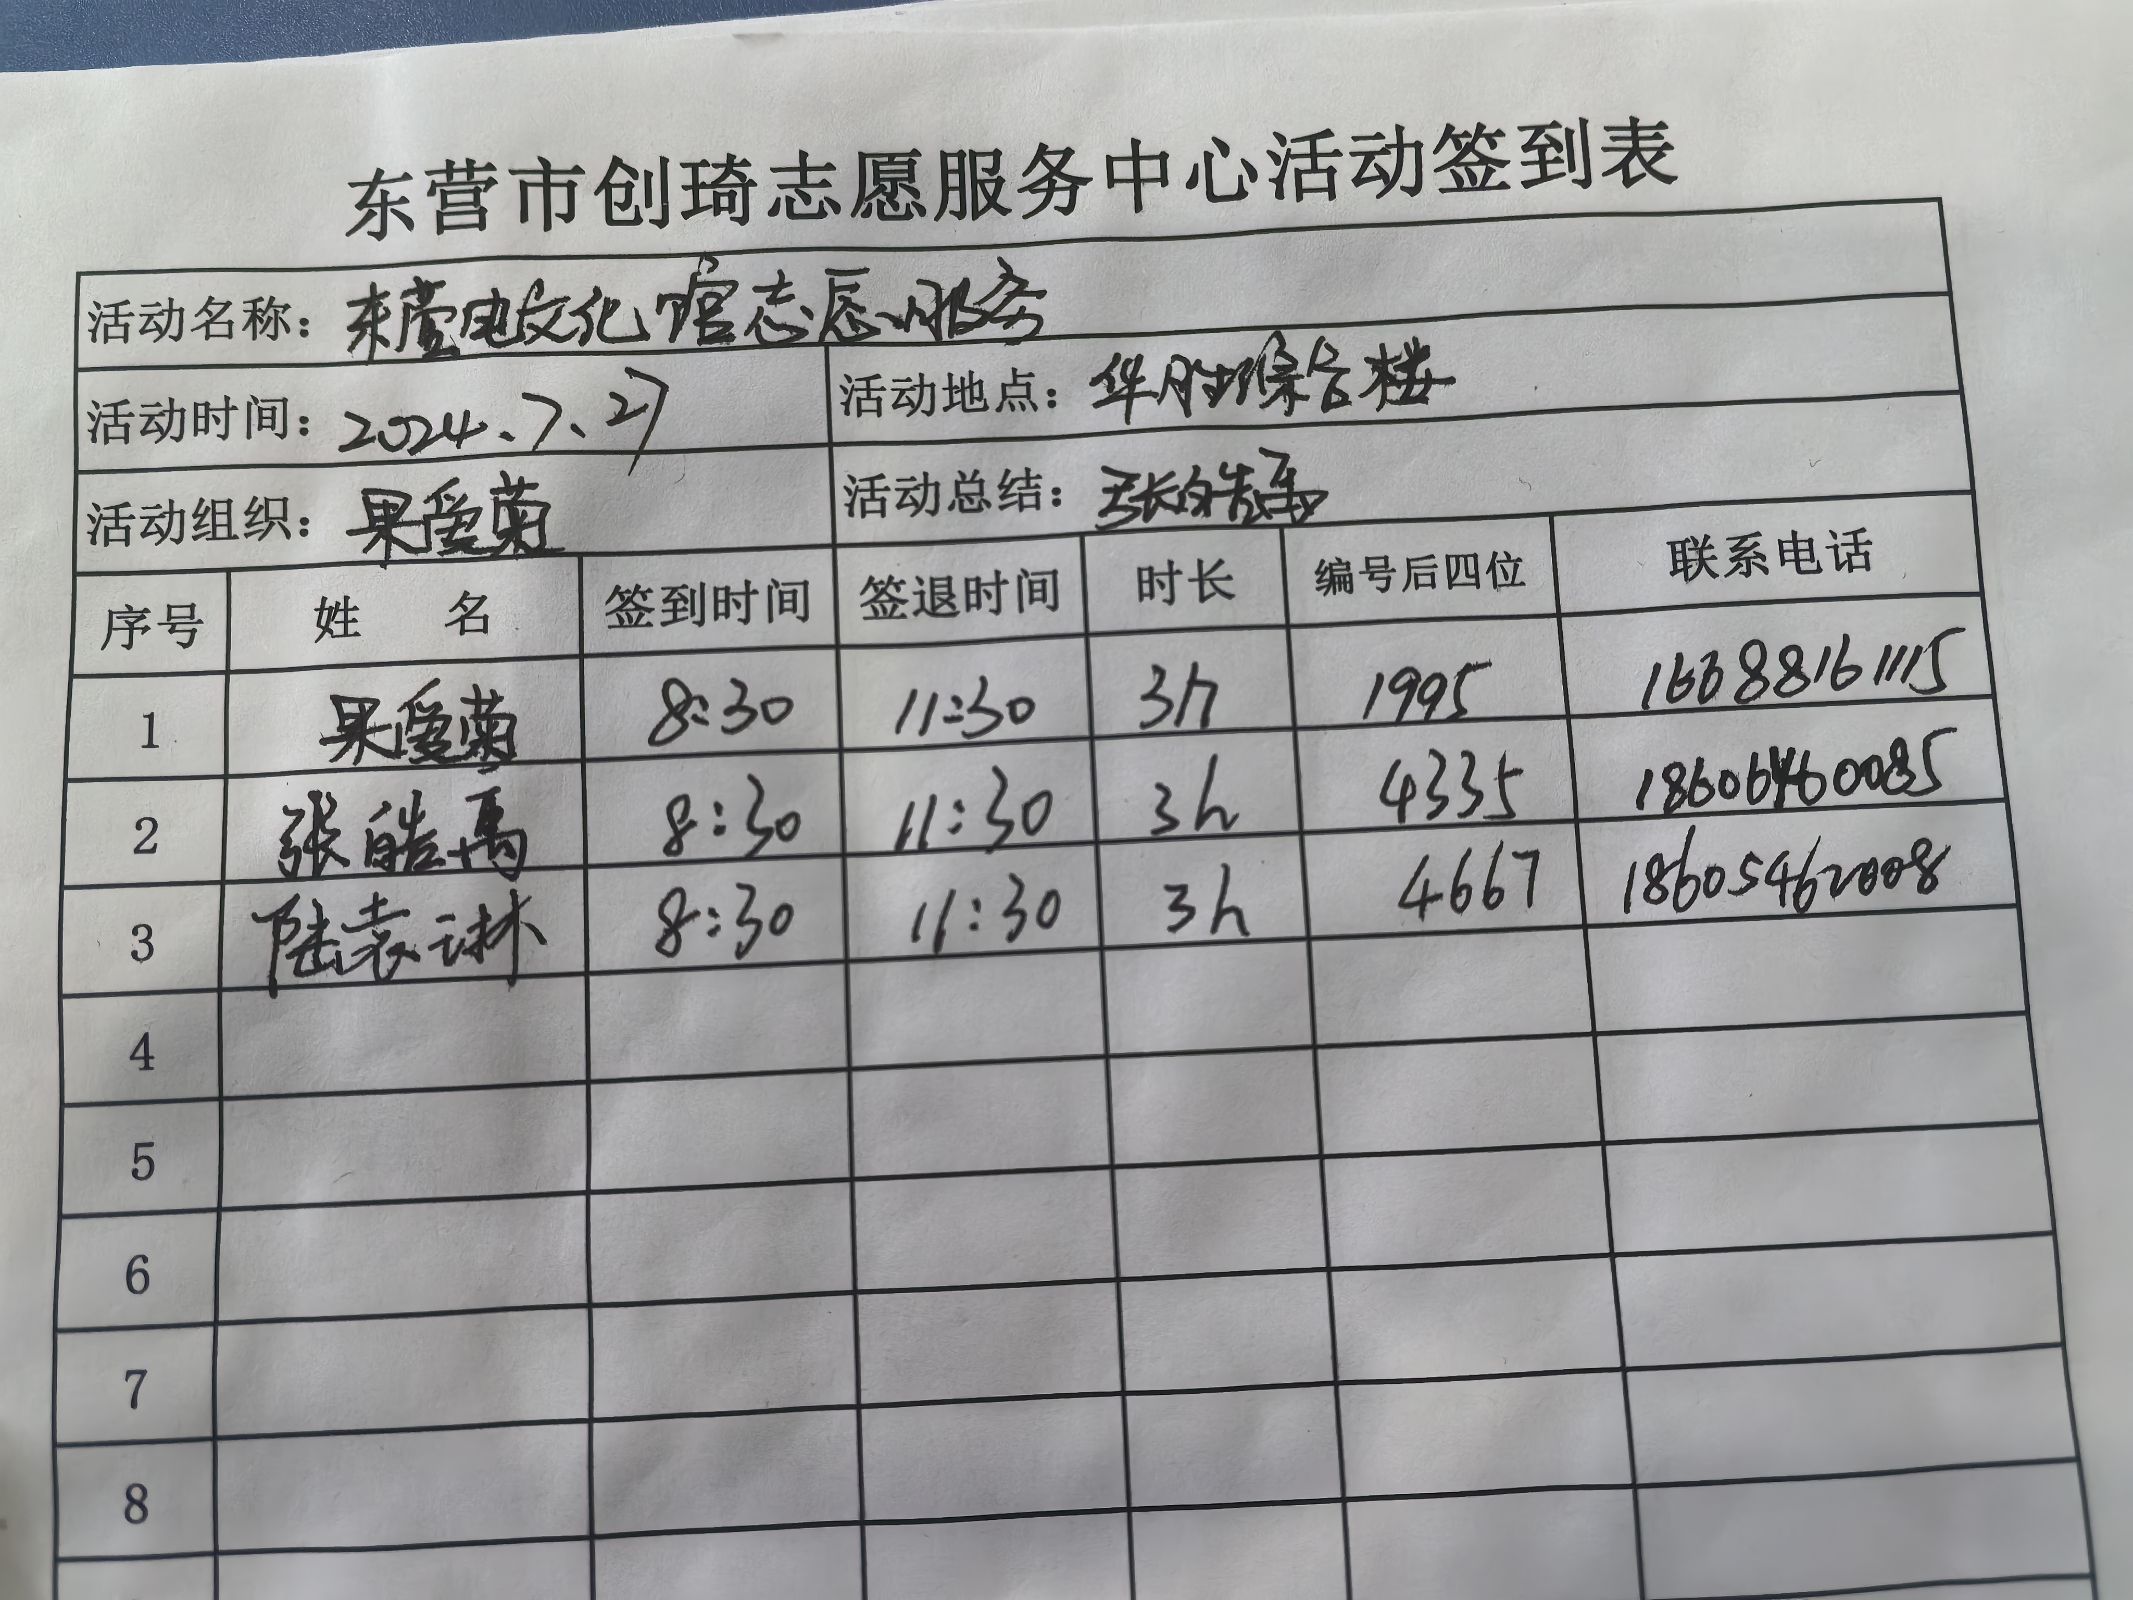 东营市创琦志愿服务中心活动签到表
活动名称：东营区文化馆志愿服务
活动时间：2024.7.27 活动地点：华胜综合楼
活动组织：果爱菊 活动总结：张皓禹
序号 姓 名 签到时间 签退时间 时长 编号后四位 联系电话
1 果爱菊 8:30 11:30 3h 1995
2 张皓禹 8:30 11:30 3h 4335
3 陆袁琳 8:30 11:30 3h 4667 18605462008
4
5
6
7
8